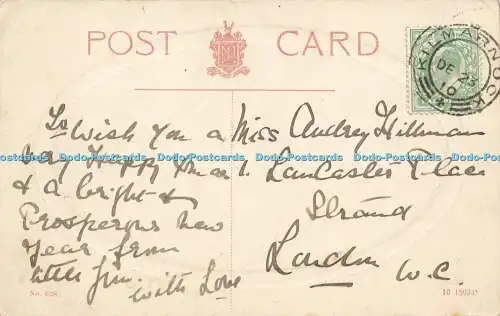 POST CARD
KILMARNOCK
DE 23
10
To Wish You a
Very Happy Xmas
& a bright &
Prosperous New
Year from
little Jim.
with Love
Miss Audrey Hillman
1. Lancaster Place
Strand
London
W.C.
Dodo-Postcards Dodo-Postcards Dodo-Postcards Dodo-Postcards Dodo-Postcards